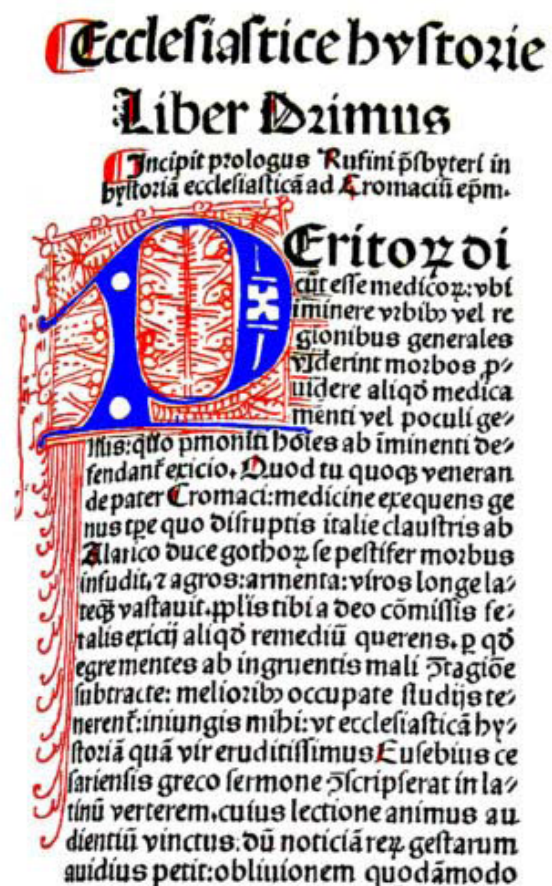 Ecclesiastice hystorie
Liber Primus
Incipit prologus Rufini p̄sbyteri in
hystoriā ecclesiasticā ad Cromaciū ep̄m.
Peritoꝝ di
cūt esse medicoꝝ: vbi
iminere vrbibꝫ vel re
gionibus generales
viderint morbos ꝓ⸗
uidere aliqđ medica
menti vel poculi ge⸗
nus: quo p̄moniti hoīes ab īminenti de⸗
fendant᷑ exicio. Quod tu quoqꝫ veneran
de pater Cromaci: medicine exequens ge
nus tꝑe quo disruptis italie claustris ab
Alarico duce gothoꝝ se pestifer morbus
infudit, ⁊ agros: armenta: viros longe la⸗
teqꝫ vastauit. pp̄lis tibi a deo cōmissis fe⸗
ralis exicij aliqđ remediū querens. ꝑ qđ
egre mentes ab ingruentis mali ꝯtagiōe
subtracte: melioribꝫ occupate studijs te⸗
nerent᷑: iniungis mihi: vt ecclesiasticā hy⸗
storiā quā vir eruditissimus Eusebius ce
sariensis greco sermone ꝯscripserat in la⸗
tinū verterem. cuius lectione animus au
dientiū vinctus. dū noticiā reꝝ gestarum
auidius petit: obliuionem quodāmodo